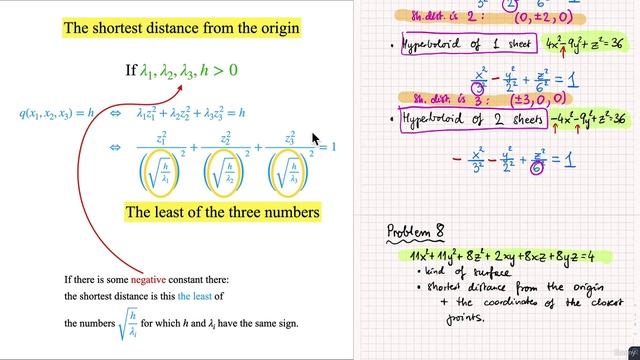 The shortest distance from the origin
If λ₁, λ₂, λ₃, h > 0
q(x₁, x₂, x₃) = h ⇔ λ₁z₁² + λ₂z₂² + λ₃z₃² = h
⇔ z₁²/(√(h/λ₁))² + z₂²/(√(h/λ₂))² + z₃²/(√(h/λ₃))² = 1
The least of the three numbers
If there is some negative constant there:
the shortest distance is this the least of
the numbers √(h/λᵢ) for which h and λᵢ have the same sign.
3² 2² 6²
Sh. dist. is 2 : (0, ±2, 0)
• Hyperboloid of 1 sheet 4x²-9y²+z²=36
x²/3² - y²/2² + z²/6² = 1
Sh. dist. is 3 : (±3, 0, 0)
• Hyperboloid of 2 sheets -4x²-9y²+z²=36
- x²/3² - y²/2² + z²/6² = 1
Problem 8
11x²+11y²+8z²+2xy+8xz+8yz=4
• kind of surface
• shortest distance from the origin
+ the coordinates of the closest
points.